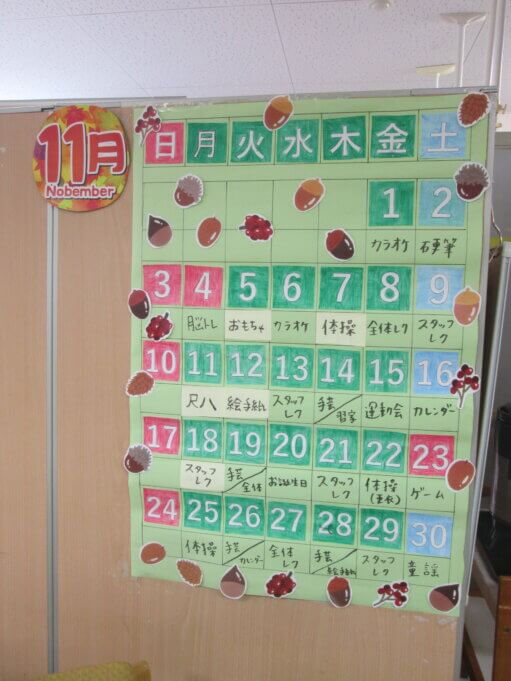 11月
Nobember
日 月 火 水 木 金 土
1 2
カラオケ 硬筆
3 4 5 6 7 8 9
脳トレ おもちゃ カラオケ 体操 全体レク スタッフレク
10 11 12 13 14 15 16
尺八 絵手紙 スタッフレク 手芸/習字 運動会 カレンダー
17 18 19 20 21 22 23
スタッフレク 手芸/全体 お誕生日 スタッフレク 体操(更衣) ゲーム
24 25 26 27 28 29 30
体操 手芸/カレンダー 全体レク 手芸/絵手紙 スタッフレク 童謡